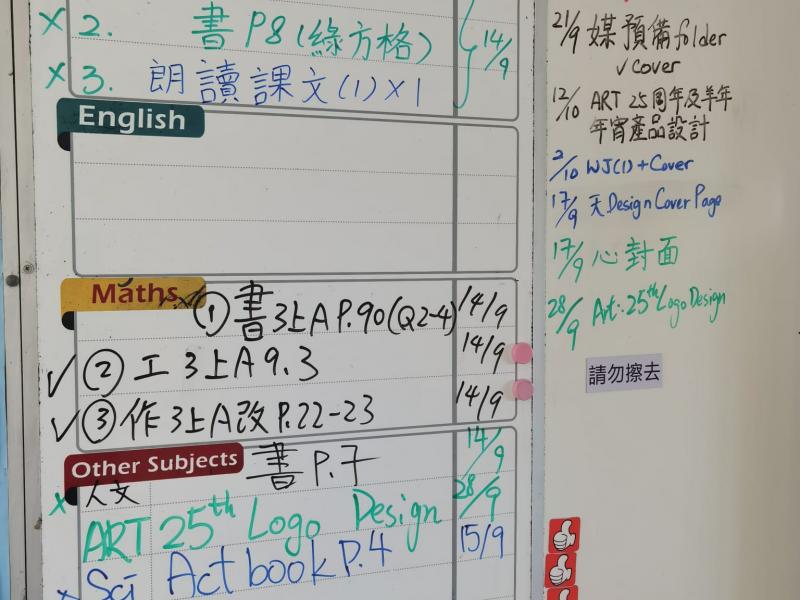 x 2. 書 P8 (綠方格) 14/9
x 3. 朗讀課文(1) x 1
English
Maths
① 書 3上A P.90 (Q2-4) 14/9
✓ ② 工 3上A 9.3 14/9
✓ ③ 作 3上A 改 P.22-23 14/9
Other Subjects
x 人文 書 P.7 14/9
ART 25th Logo Design 28/9
x Sci Act book P.4 15/9
21/9 媒 預備 folder
✓ cover
12/10 ART 25周年及羊年
年宵產品設計
2/10 WJ(1) + Cover
17/9 天 Design Cover Page
17/9 心封面
28/9 Art: 25th Logo Design
請勿擦去